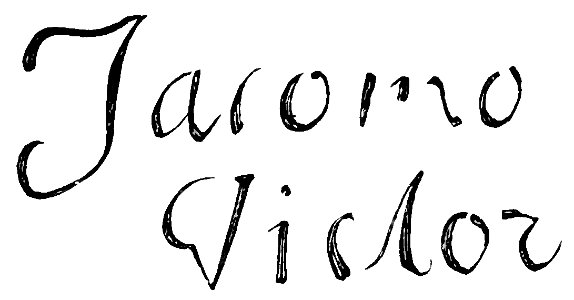 Jacomo
Victor